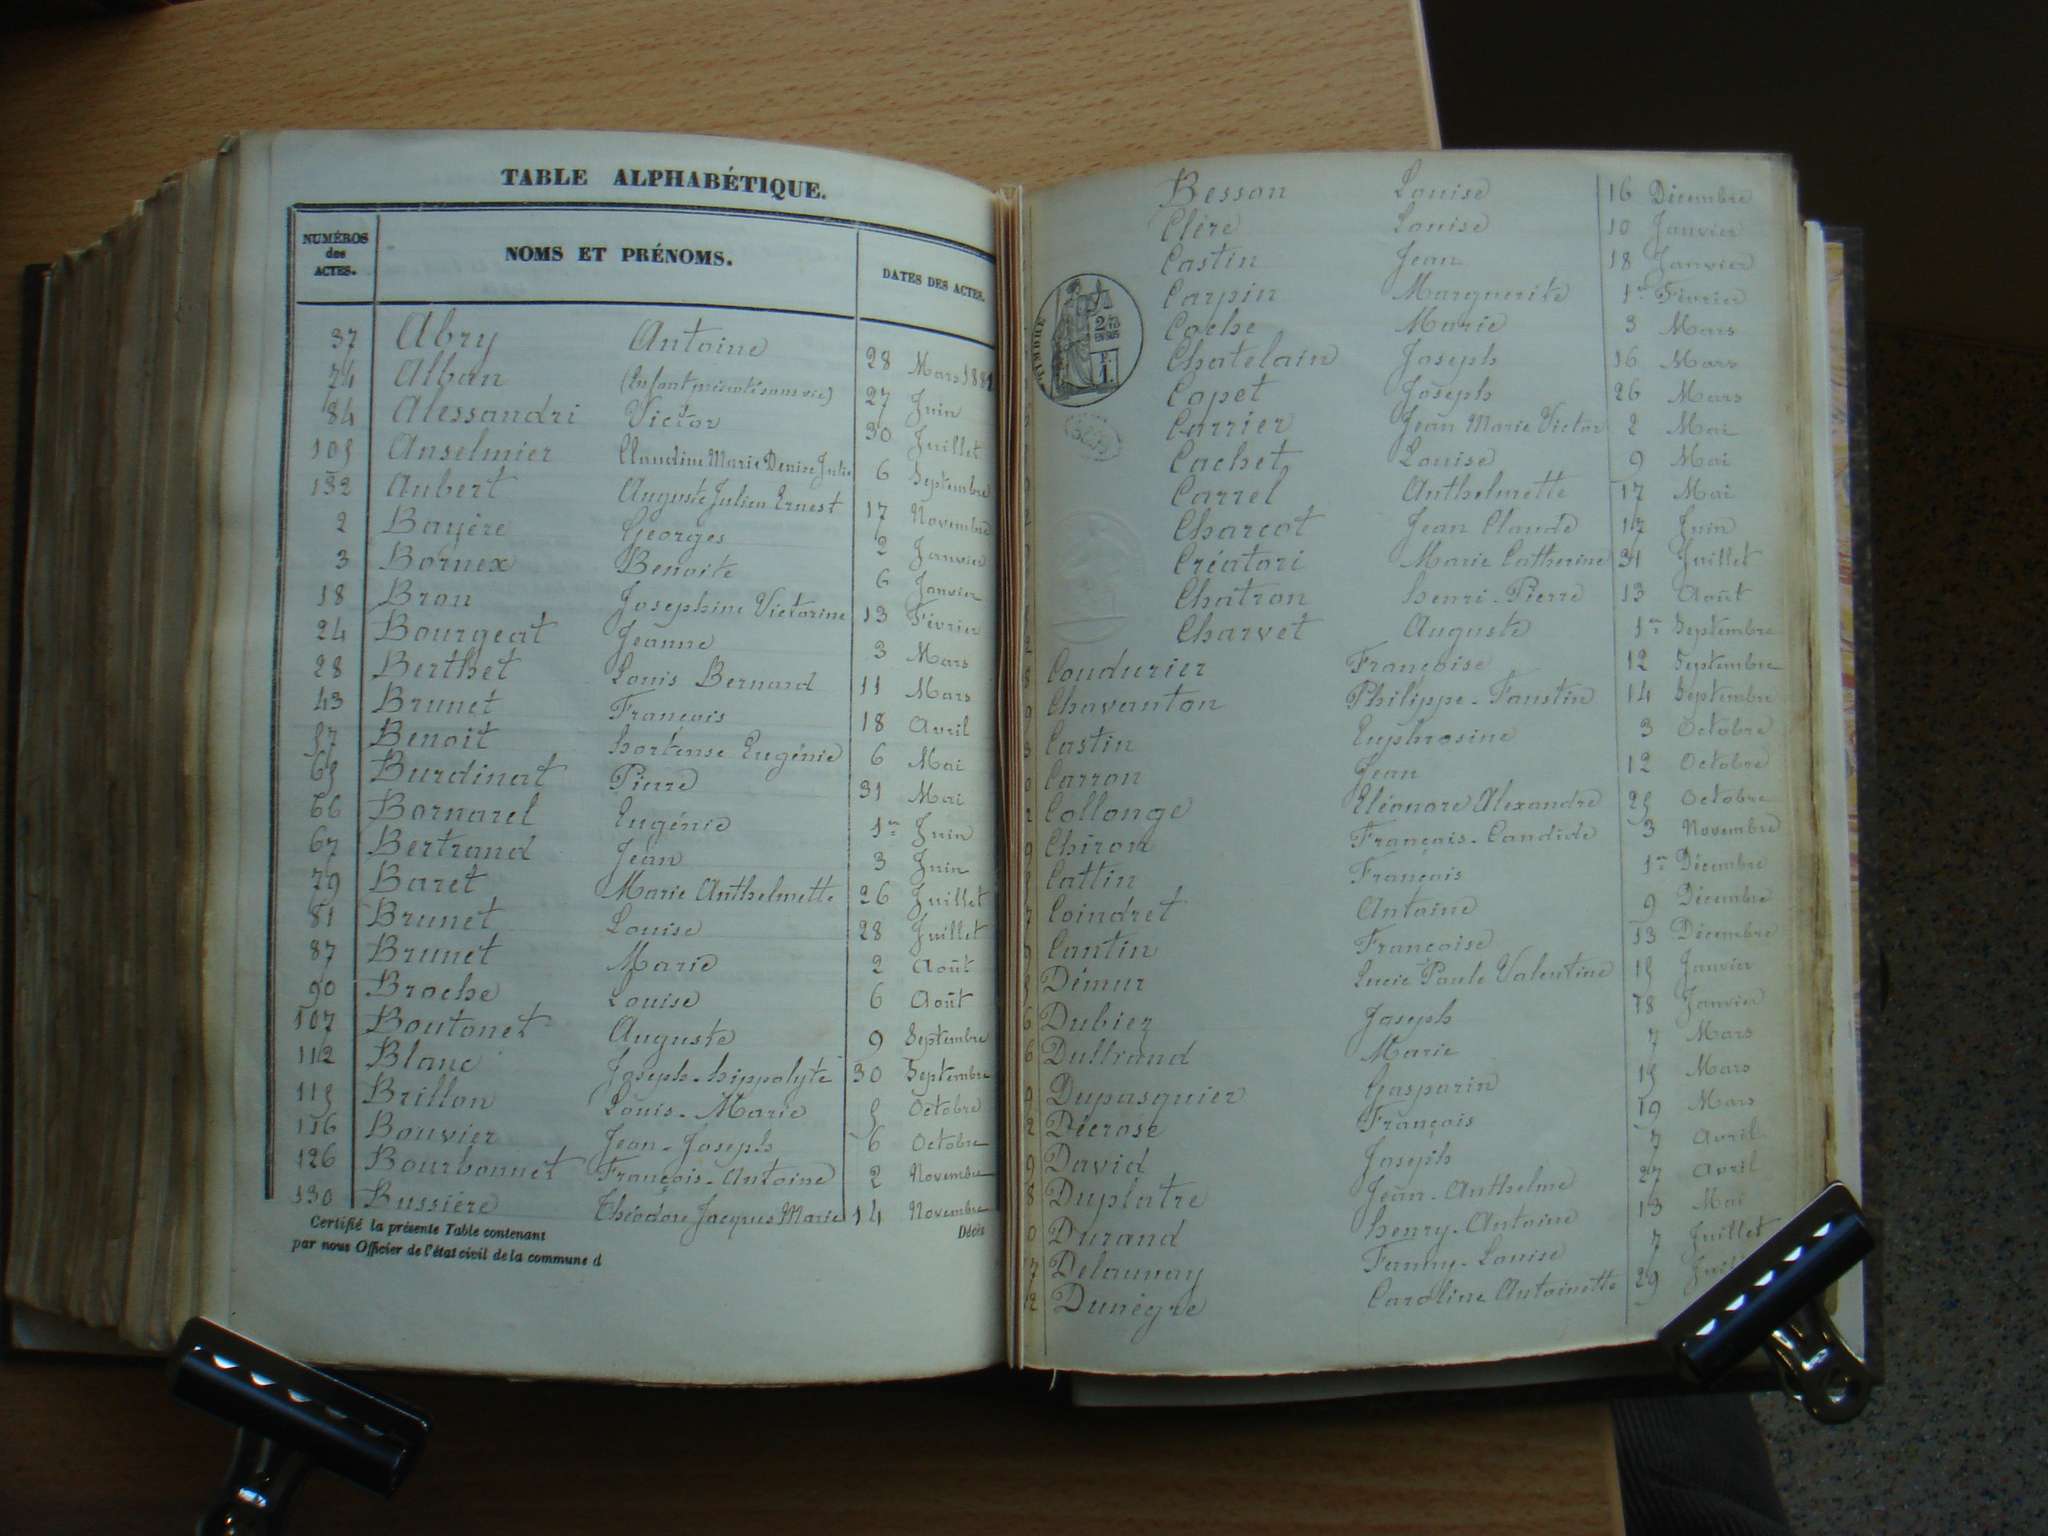 TABLE ALPHABÉTIQUE.
NUMÉROS des ACTES. NOMS ET PRÉNOMS. DATES DES ACTES.
37 Abry Antoine 28 Mars 1881
74 Alban 27 Juin
84 Alessandri Victor 30 Juillet
105 Anselmier Claudine Marie Denise Julie 6 Septembre
132 Aubert Auguste Julien Ernest 17 Novembre
2 Bayère Georges 2 Janvier
3 Bornex Benoite 6 Janvier
18 Bron Josephine Victorine 13 Février
24 Bourgeat Jeanne 3 Mars
28 Berthet Louis Bernard 11 Mars
43 Brunet François 18 Avril
57 Benoit hortense Eugénie 6 Mai
65 Burdinat Pierre 31 Mai
66 Bornarel Eugénie 1er Juin
67 Bertrand Jean 3 Juin
79 Baret Marie Anthelmette 26 Juillet
81 Brunet Louise 28 Juillet
87 Brunet Marie 2 Août
90 Broche Louise 6 Août
107 Boutonet Auguste 9 Septembre
112 Blanc Joseph-hippolyte 30 Septembre
115 Brillon Louis-Marie 5 Octobre
116 Bouvier Jean-Joseph 6 Octobre
126 Bourbonnet François-Antoine 2 Novembre
130 Bussière Théodore Jacques Marie 14 Novembre
Certifié la présente Table contenant Décès
par nous Officier de l'état civil de la commune d
Besson Louise 16 Décembre
Clère Louise 10 Janvier
Castin Jean 18 Janvier
Carpin Marguerite 1er Février
Coche Marie 3 Mars
Chatelain Joseph 16 Mars
Capet Joseph 26 Mars
Carrier Jean Marie Victor 2 Mai
Cachet Louise 9 Mai
Carrel Anthelmette 17 Mai
Charcot Jean Claude 17 Juin
Créatori Marie Catherine 31 Juillet
Chatron henri-Pierre 13 Août
Charvet Auguste 1er Septembre
Coudurier Françoise 12 Septembre
Chavanton Philippe-Faustin 14 Septembre
Castin Euphrosine 3 Octobre
Carron Jean 12 Octobre
Collonge Eléonore Alexandre 25 Octobre
Chiron François-Candide 3 Novembre
Cattin François 1er Décembre
Coindret Antoine 9 Décembre
Cantin Françoise 13 Décembre
Démur Lucie Paule Valentine 15 Janvier
Dubiez Joseph 18 Janvier
Dullrand Marie 7 Mars
Dupasquier Gasparin 15 Mars
Décrose François 19 Mars
David Joseph 7 Avril
Duplatre Jean-Anthelme 27 Avril
Durand henry-Antoine 13 Mai
Delaunay Fanny-Louise 7 Juillet
Dunègre Caroline Antoinette 29
TIMBRE
2/10
EN SUS
F.
1.